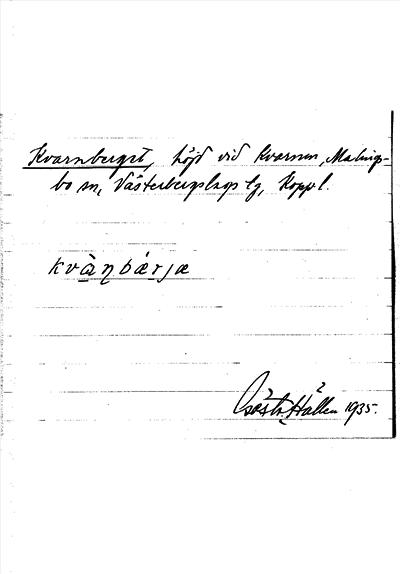 Kvarnberget, höjd vid Kvarnen, Malings-
bo sn, Västerbergslags tg, Koppl.
kvànbárjæ
Gösta Hallén 1935.